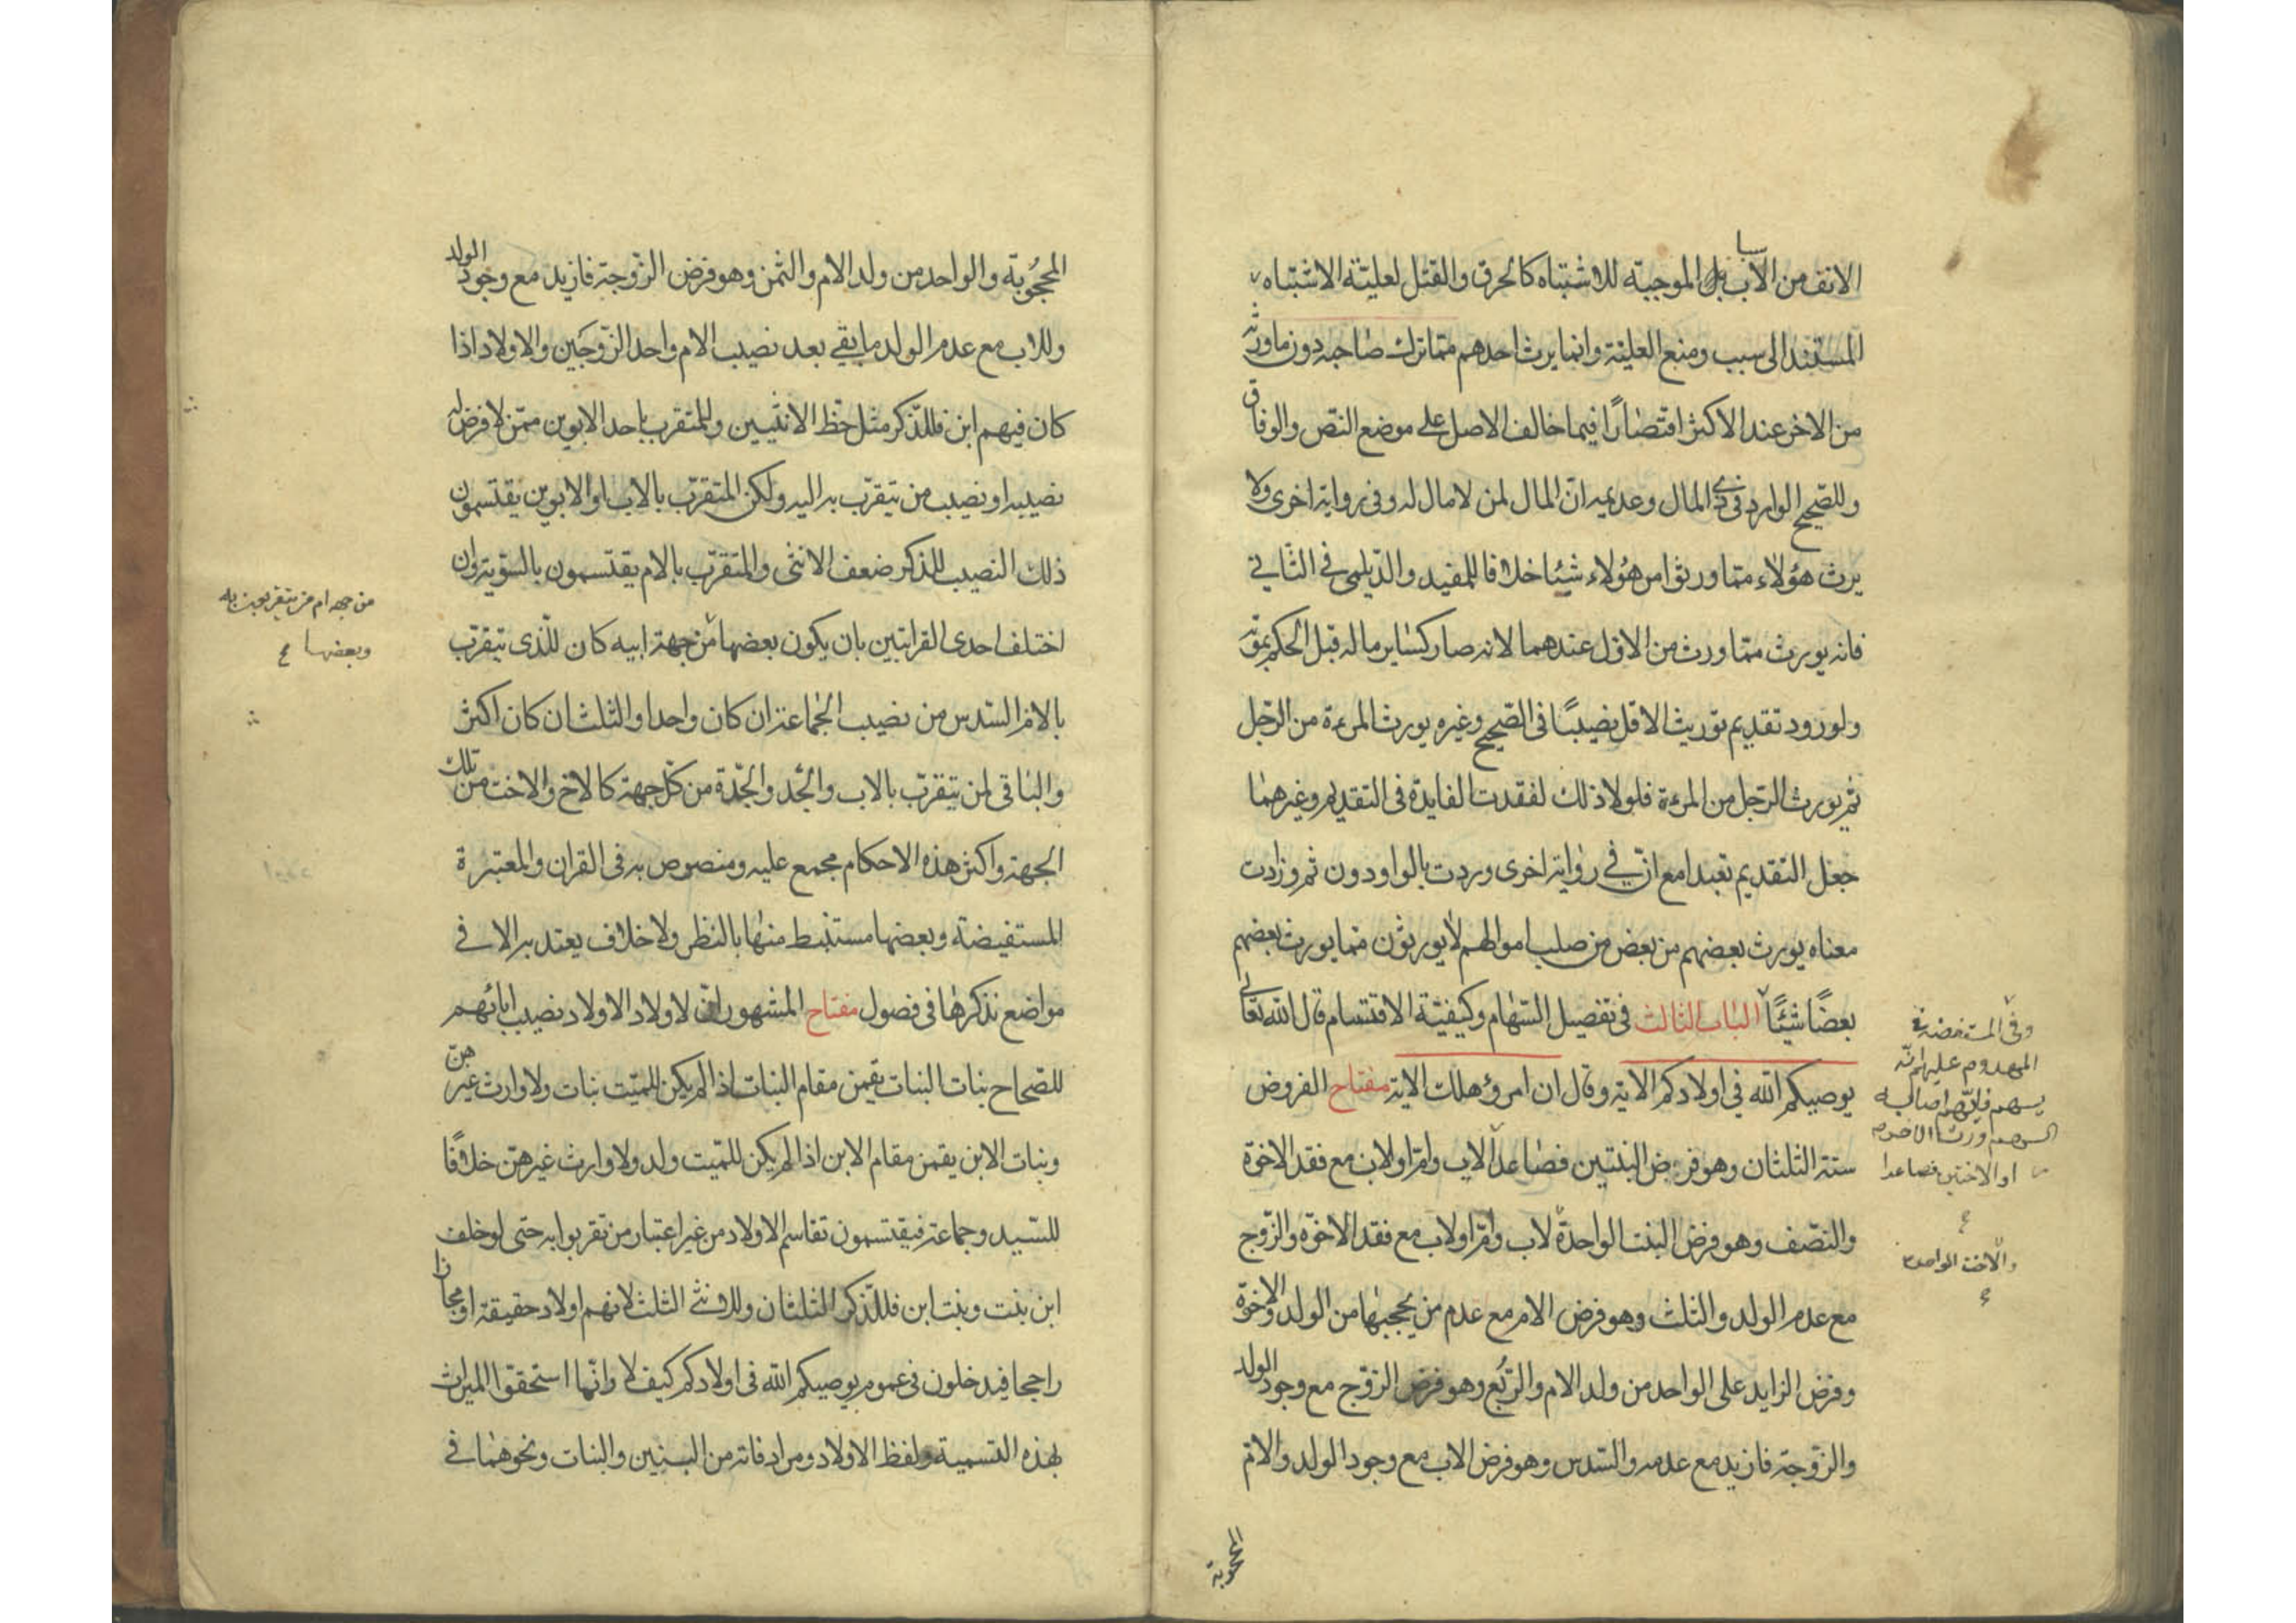 الانف من الاسباب الموجبة للاشتباه كالحرق والقتل لعلية الاشتباه
المستند الى سبب ومنع العلية وانما يرث احدهم مما ترك صاحبه دون ما ورثه
من الاخر عند الاكثر اقتصارًا فيما خالف الاصل على موضع النص والوفاق
وللصحيح الوارد فى ذى المال وعديمه ان المال لمن لا مال له وفى رواية اخرى ولا
يرث هؤلاء مما ورثوا من هؤلاء شيئا خلافا للمفيد والديلمى فى الثانى
فانه يورث مما ورث من الاول عندهما لانه صار كساير ماله قبل الحكم بموته
ولورود تقديم توريث الاقل نصيبًا فى الصحيح وغيره يورث المرءة من الرجل
ثم يورث الرجل من المرءة فلولا ذلك لفقدت الفايدة فى التقديم وغيرهما
جعل التقديم تعبدا مع ان فى رواية اخرى وردت بالواو دون ثم وزادت
معناه يورث بعضهم من بعض من صلب اموالهم لا يورثون مما يورث بعضهم
بعضًا شيئًا الباب الثالث فى تفصيل السهام وكيفيّة الاقتسام قال الله تعالى
يوصيكم الله فى اولادكم الاية وقال ان امرؤ هلك الاية مفتاح الفروض
ستة الثلثان وهو فرض البنتين فصاعدا لاب وام او لاب مع فقد الاخوة
والنصف وهو فرض البنت الواحدة لاب وام او لاب مع فقد الاخوة والزوج
مع عدم الولد والثلث وهو فرض الام مع عدم من يحجبها من الولد والاخوة
وفرض الزايد على الواحد من ولد الام والربع وهو فرض الزوج مع وجود الولد
والزوجة فازيد مع عدمه والسدس وهو فرض الاب مع وجود الولد والام
المحجوبة
وفى المستفيضة فى
المهدوم عليهم انه
او الاختين فصاعدا
والاخت الواحدة
المحجُوبة والواحد من ولد الام والثمن وهو فرض الزوجة فازيد مع وجود الولد
وللاب مع عدم الولد ما بقى بعد نصيب الام واحد الزوجَين والاولاد اذا
كان فيهم ابن فللذكر مثل حظ الانثيين وللمتقرب باحد الابوين ممن لا فرض له
نصيبه او نصيب من يتقرب به اليه ولكن المتقرب بالاب او الابوين يقتسمون
ذلك النصيب للذكر ضعف الانثى والمتقرب بالام يقتسمون بالسوية وان
اختلف احدى القرابتين بان يكون بعضها من جهة ابيه كان للذى يتقرب
بالام السدس من نصيب الجماعة ان كان واحدا والثلث ان كان اكثر
والباقى لمن يتقرب بالاب والجد والجدة من كل جهة كالاخ والاخت من تلك
الجهة واكثر هذه الاحكام مجمع عليه ومنصوص به فى القران والمعتبرة
المستفيضة وبعضها مستنبط منها بالنظر ولا خلاف يعتد به الا فى
مواضع نذكرها فى فصول مفتاح المشهور ان لاولاد الاولاد نصيب ابائهم
للصحاح بنات البنات يقمن مقام البنات اذا لم يكن للميت بنات ولا وارث غيرهن
وبنات الابن يقمن مقام الابن اذا لم يكن للميت ولد ولا وارث غيرهن خلافًا
للسيد وجماعة فيقتسمون تقاسم الاولاد من غير اعتبار من تقربوا به حتى لو خلف
ابن بنت وبنت ابن فللذكر الثلثان وللانثى الثلث لانهم اولاد حقيقة او مجازا
راجحا فيدخلون فى عموم يوصيكم الله فى اولادكم كيف لا وانما استحقوا الميراث
بهذه التسمية ولفظ الاولاد ومرادفاته من البنين والبنات ونحوهما فى
من جهة ام من يتقربون به
وبعضها